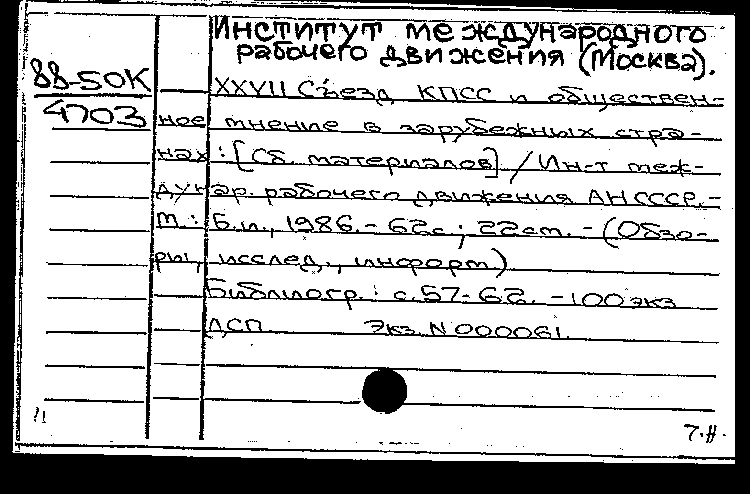 Институт международного
рабочего движения (Москва).
88-50К
4703
XXVII Съезд КПСС и обществен-
ное мнение в зарубежных стра-
нах : [Сб. материалов] / Ин-т меж-
дунар. рабочего движения АН СССР. -
М. : Б.и., 1986. - 62с ; 22см. - (Обзо-
ры, исслед., информ.)
Библиогр. : с. 57-62. - 100 экз
ДСП Экз. N 000061.